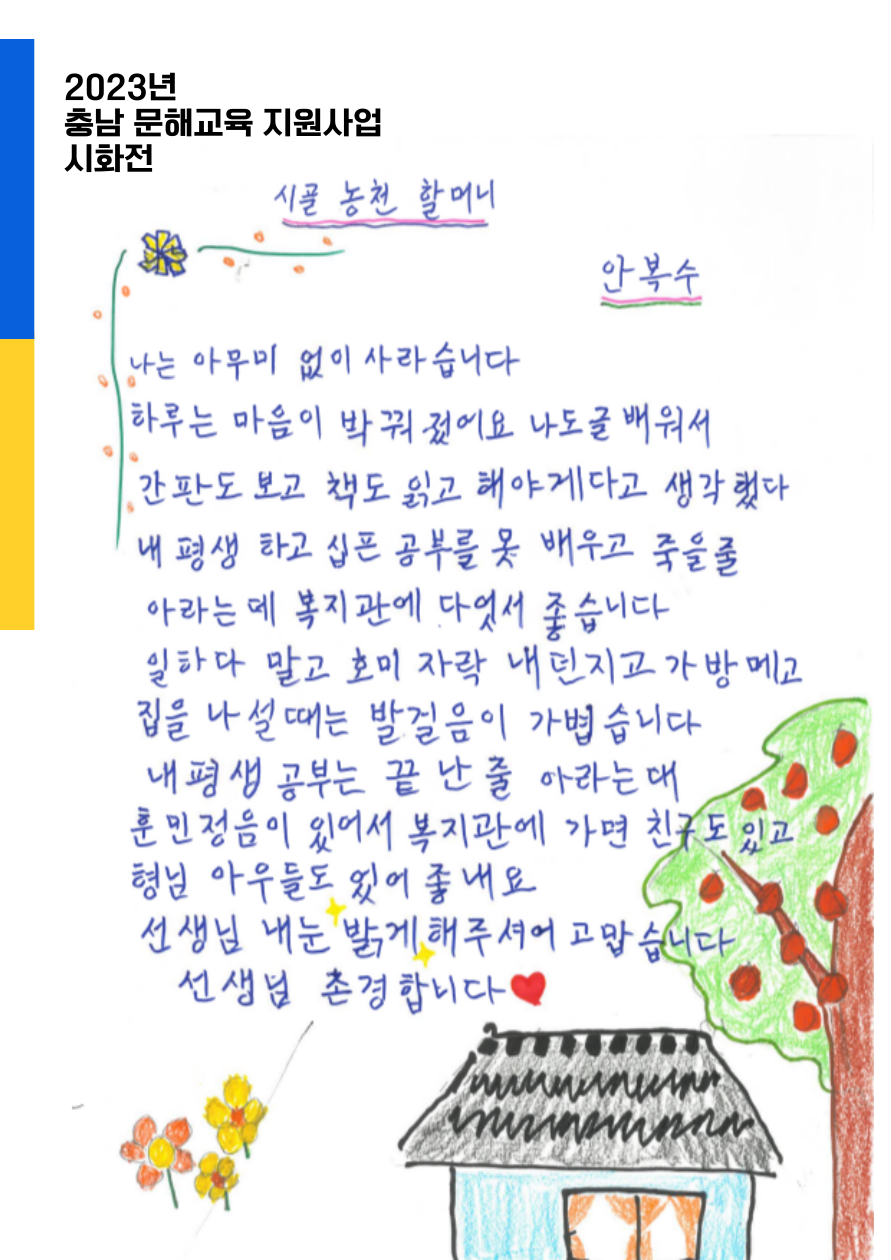 2023년
충남 문해교육 지원사업
시화전
시골 농천 할머니
안복수
나는 아무미 없이 사라습니다
하루는 마음이 박꿔졌어요 나도글배워서
간판도 보고 책도 읽고 해야게다고 생각했다
내평생 하고십픈 공부를 못 배우고 죽을줄
아라는데 복지관에 다엇서 좋습니다
일하다 말고 호미 자락 내던지고 가방메고
집을 나설때는 발걸음이 가볍습니다
내평생 공부는 끝난줄 아라는대
훈민정음이 있어서 복지관에 가면 친구도 있고
형님 아우들도 있어 좋내요
선생님 내눈 밝게해주셔어 고맙습니다
선생님 촌경합니다